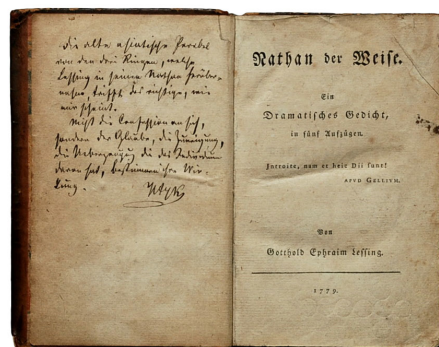 die alte asiatische Parabel
von den drei Ringen, welche
Lessing in seinem Nathan
trifft das richtige, wie
mir scheint.
Nicht die Confession an sich,
sondern der Glaube, die
die Ueberzeugung die das Individuum
davon hat, bestimmen ihre Wir-
kung.
Nathan der Weise.
Ein
Dramatisches Gedicht,
in fünf Aufzügen.
Introite, nam et heic Dii sunt!
APVD GELLIVM.
Von
Gotthold Ephraim Lessing.
1779.